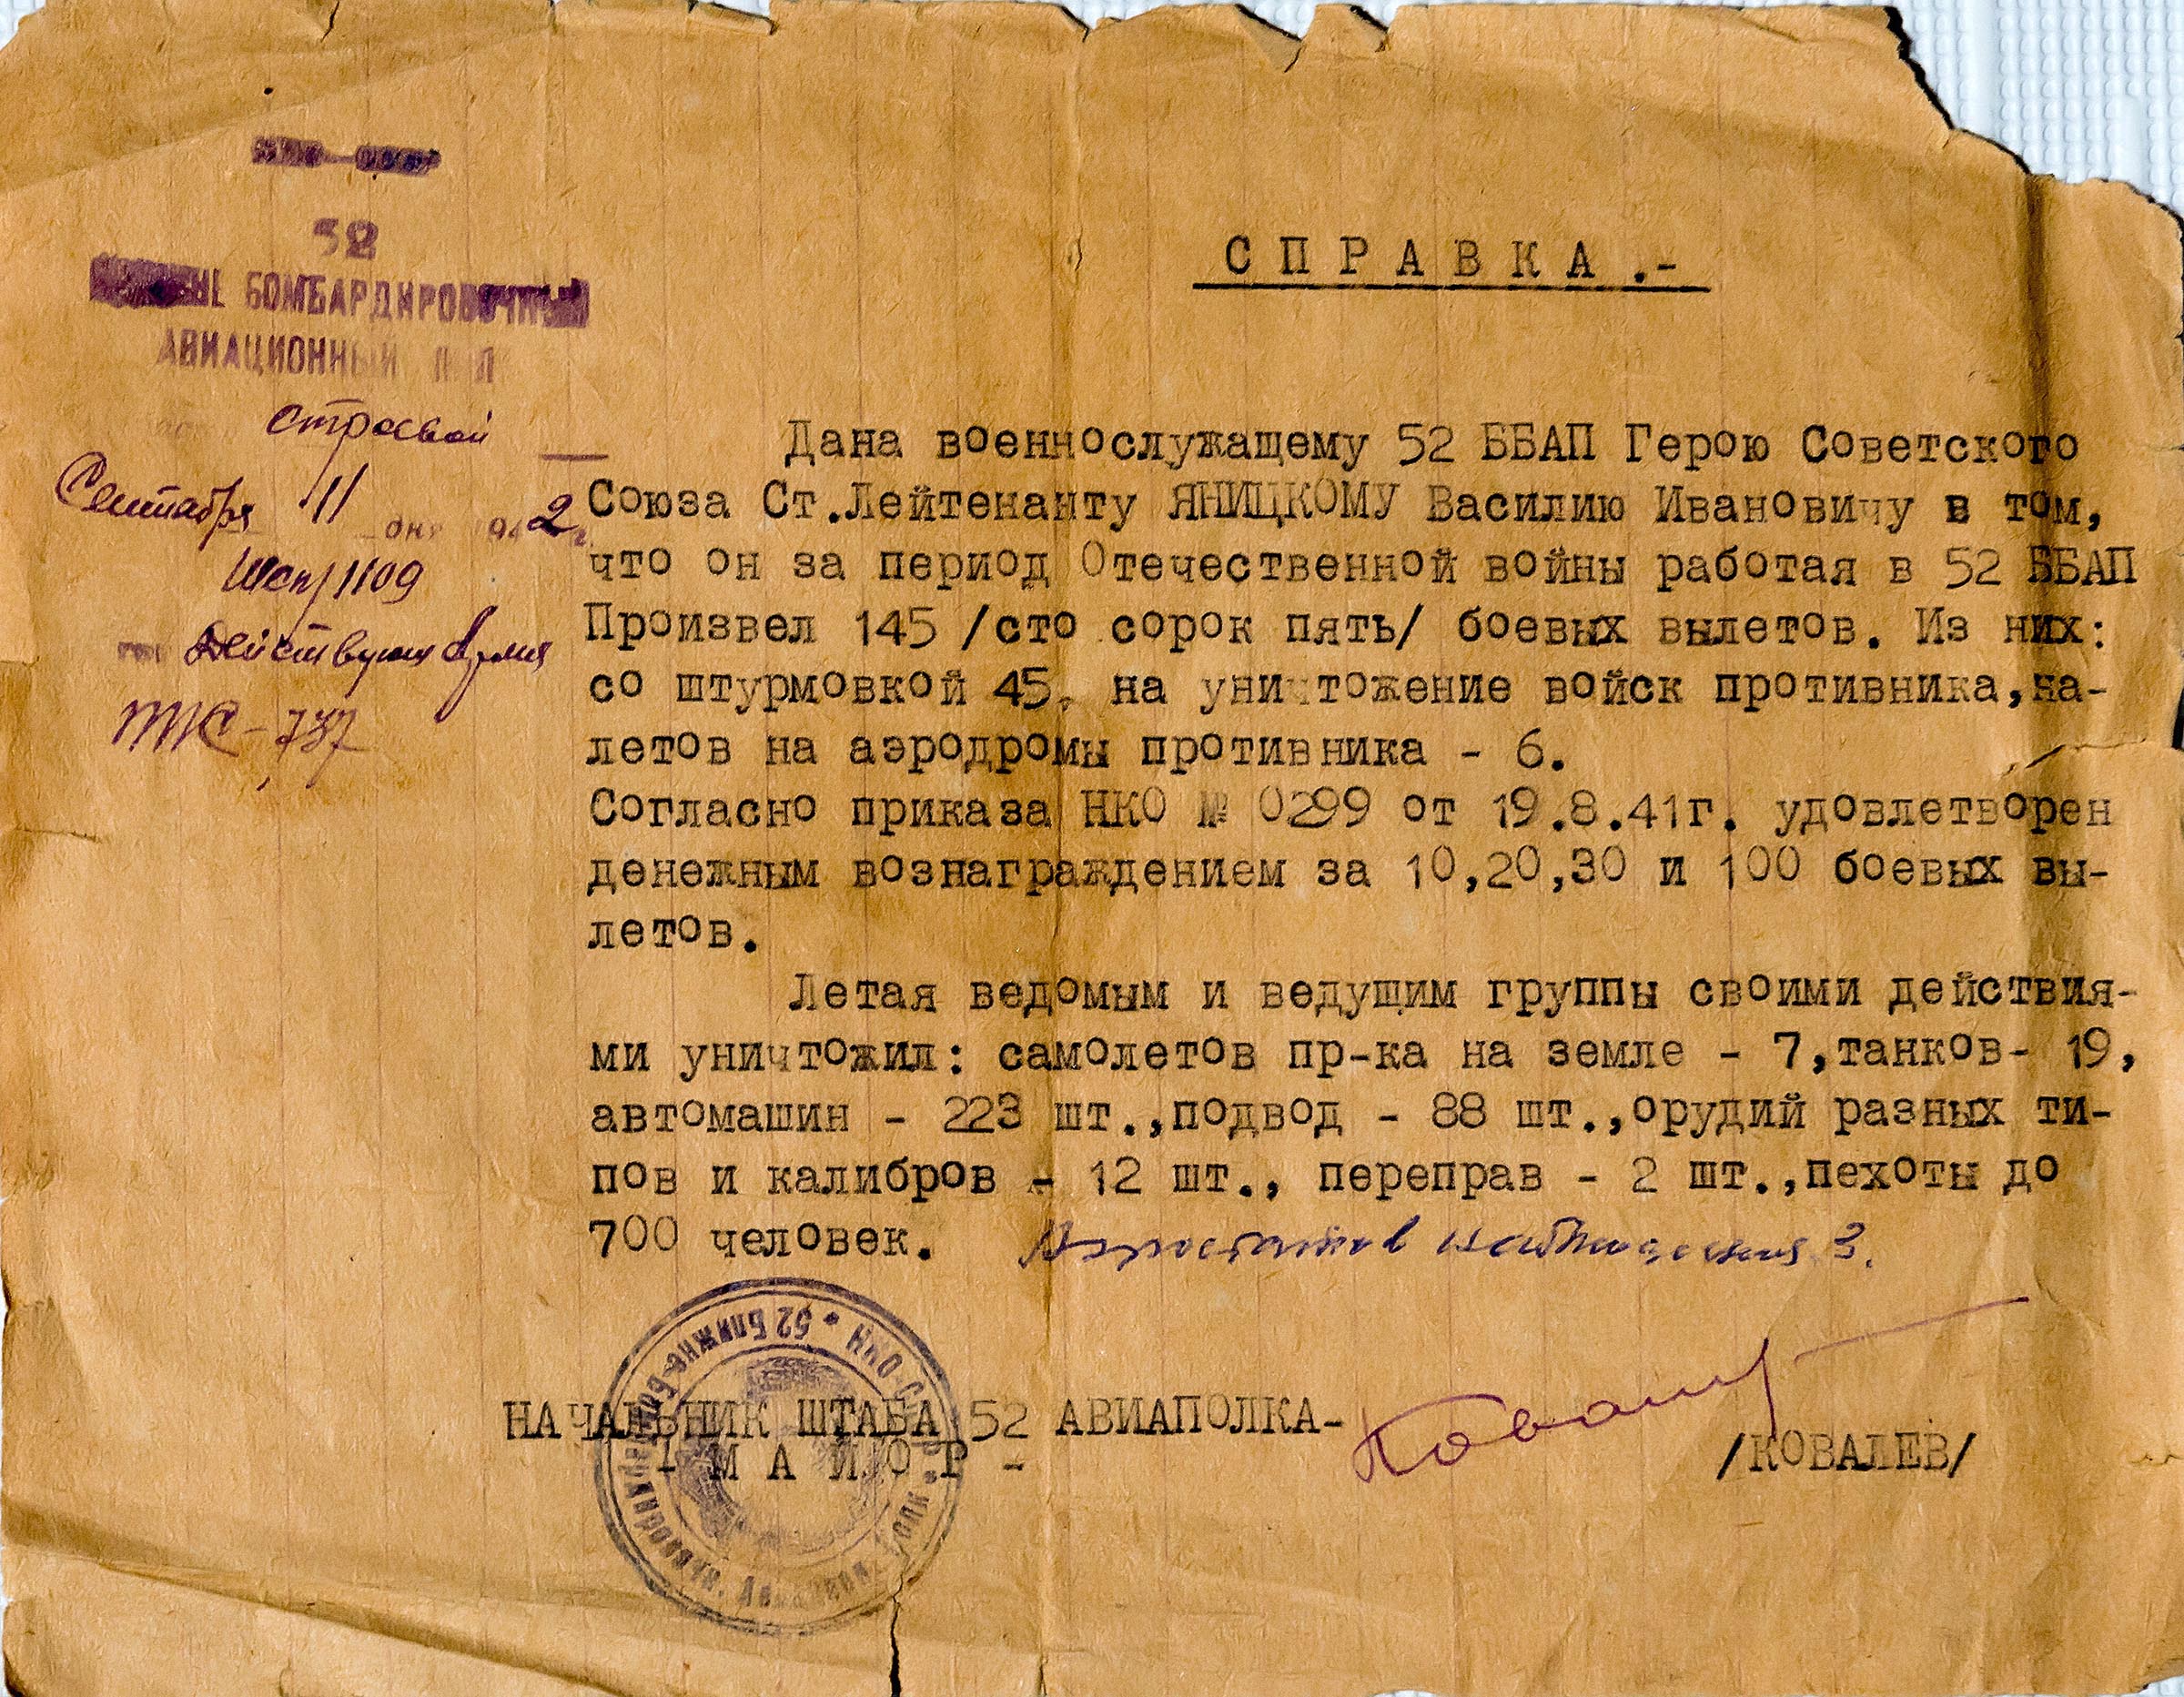 52
БОМБАРДИРОВОЧНЫЙ
АВИАЦИОННЫЙ
строевой
Сентября 11 2
1109
Действующая Армия
ППС - 737
СПРАВКА.-
Дана военнослужащему 52 ББАП Герою Советского
Союза Ст.Лейтенанту ЯНИЦКОМУ Василию Ивановичу в том,
что он за период Отечественной войны работая в 52 ББАП
Произвел 145 /сто сорок пять/ боевых вылетов. Из них:
со штурмовкой 45, на уничтожение войск противника,на-
летов на аэродромы противника - 6.
Согласно приказа НКО № 0299 от 19.8.41г. удовлетворен
денежным вознаграждением за 10,20,30 и 100 боевых вы-
летов.
Летая ведомым и ведущим группы своими действия-
ми уничтожил: самолетов пр-ка на земле - 7,танков- 19,
автомашин - 223 шт.,подвод - 88 шт.,орудий разных ти-
пов и калибров - 12 шт., переправ - 2 шт.,пехоты до
700 человек. Аэростатов наблюдения 3.
НАЧАЛЬНИК ШТАБА 52 АВИАПОЛКА-
- МАЙОР -
/КОВАЛЕВ/
52 Ближне-Бомбардировоч. Авиацион. полк